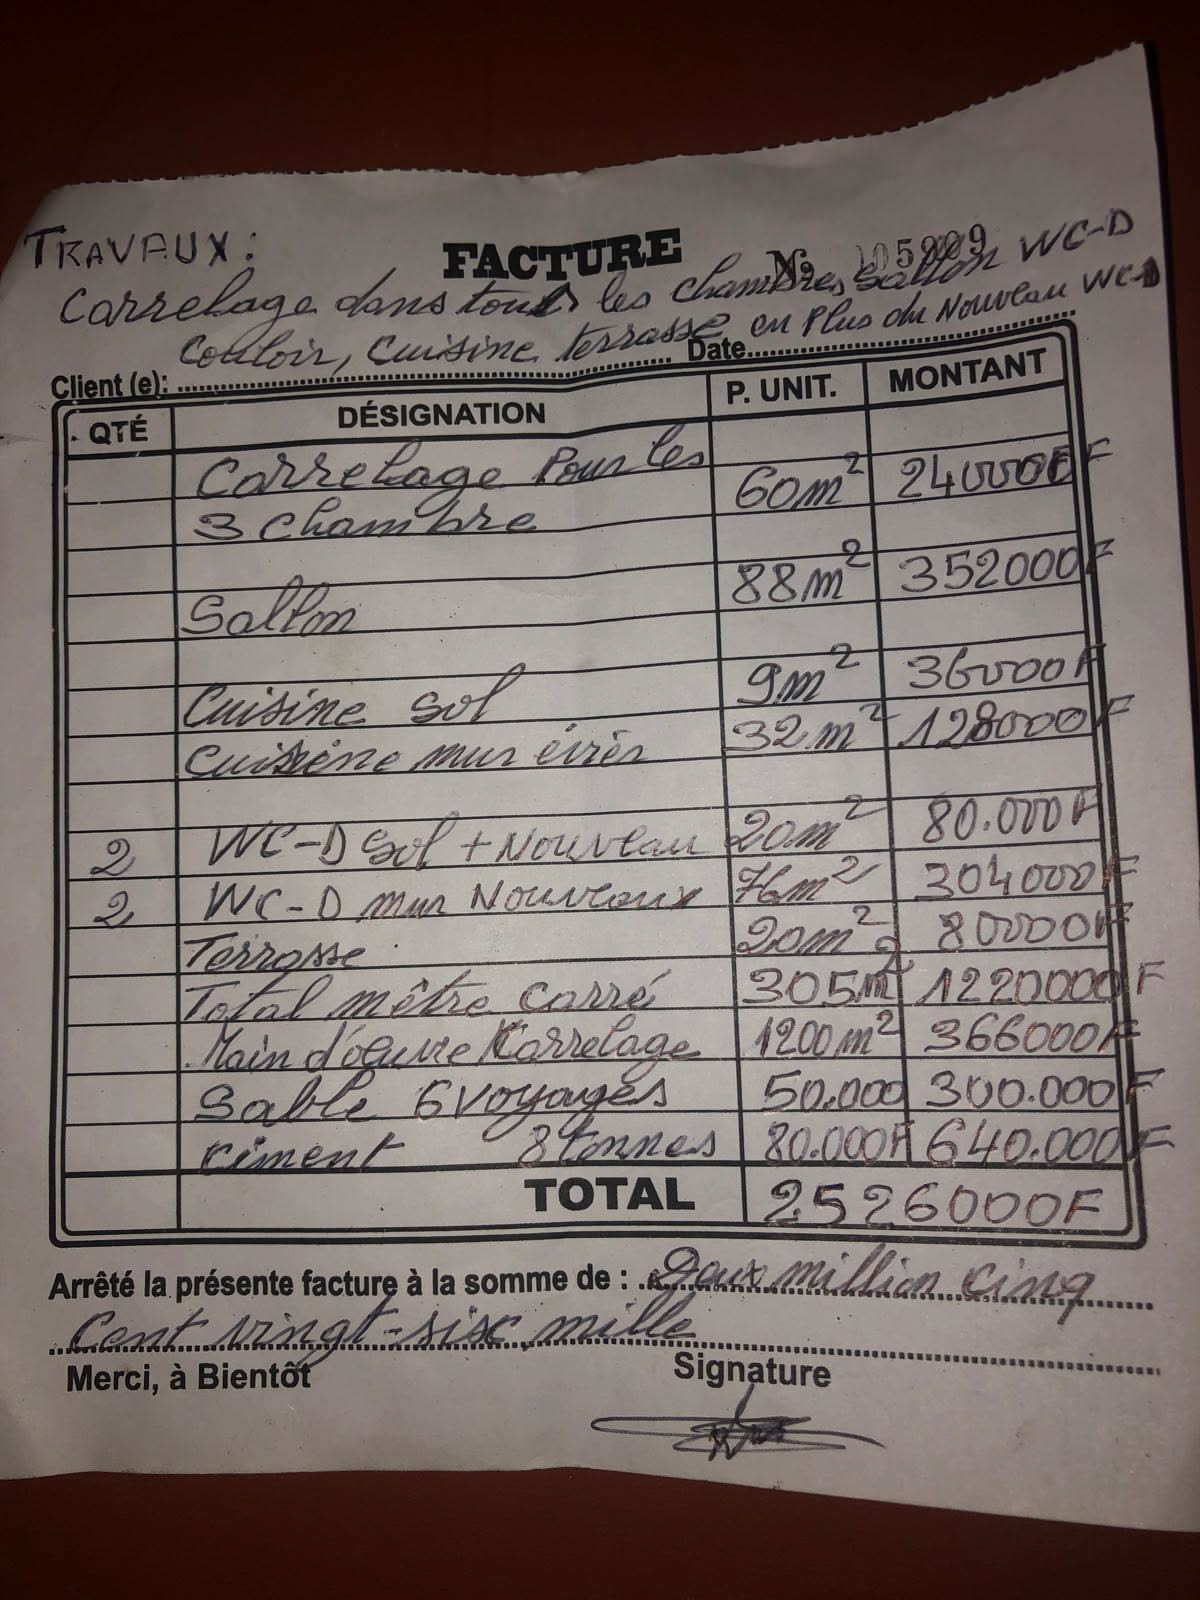 TRAVAUX:
FACTURE
Carrelage dans tout les chambres Sallon WC-D
Couloir, Cuisine terrasse en Plus du Nouveau WC-D
Client (e): Date
QTÉ DÉSIGNATION P. UNIT. MONTANT
Carrelage Pour les 60m² 240000F
3 chambre
Sallon 88m² 352000F
Cuisine Sol 9m² 36000F
Cuisine mur 32m² 128000F
2 WC-D Sol + Nouveau 20m² 80.000F
2 WC-D mur Nouveaux 76m² 304000F
Terrasse 20m² 80000F
Total mêtre carré 305m² 1220000F
Main d'oeuvre Karrelage 1200m² 366000F
Sable 6 voyages 50.000 300.000F
Ciment 8 tonnes 80.000F 640.000F
TOTAL 2526000F
Arrêté la présente facture à la somme de : Deux million cinq
Cent vingt-sisc mille
Merci, à Bientôt Signature